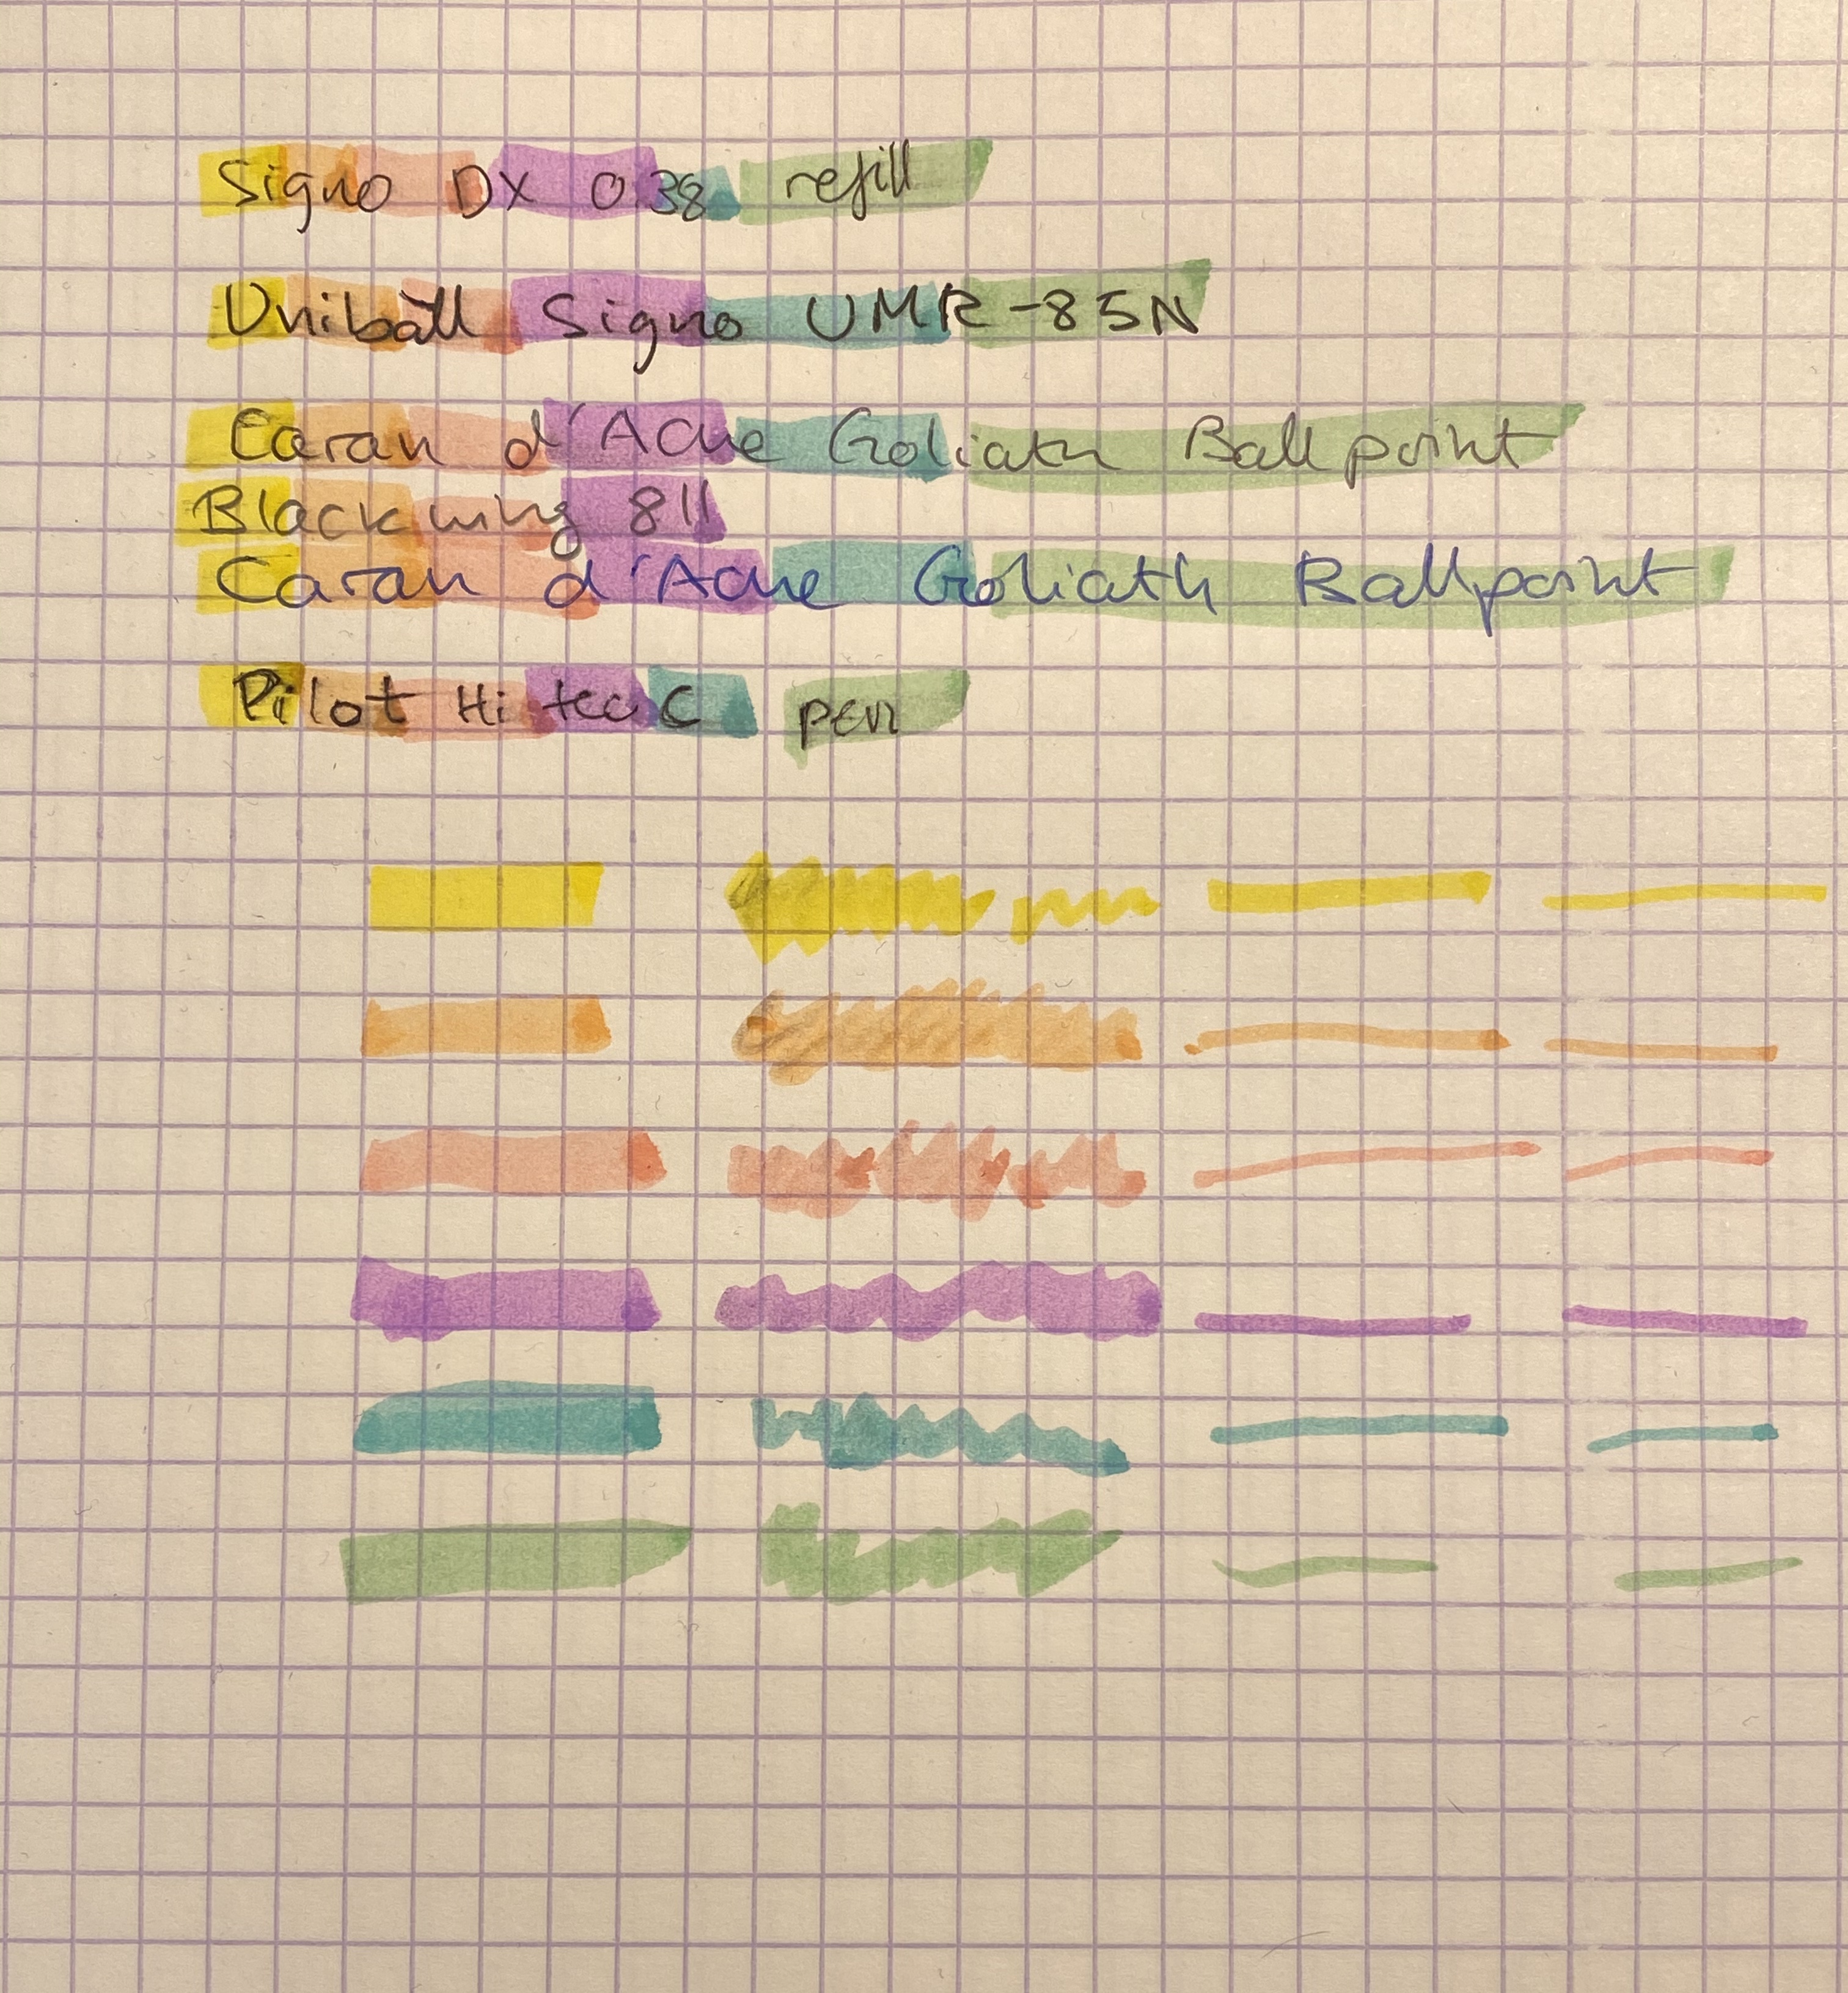 Signo DX 0.38 refill
Uniball Signo UMR-85N
Caran d'Ache Goliath Ballpoint
Blackwing 811
Caran d'Ache Goliath Ballpoint
Pilot Hi tec C pen